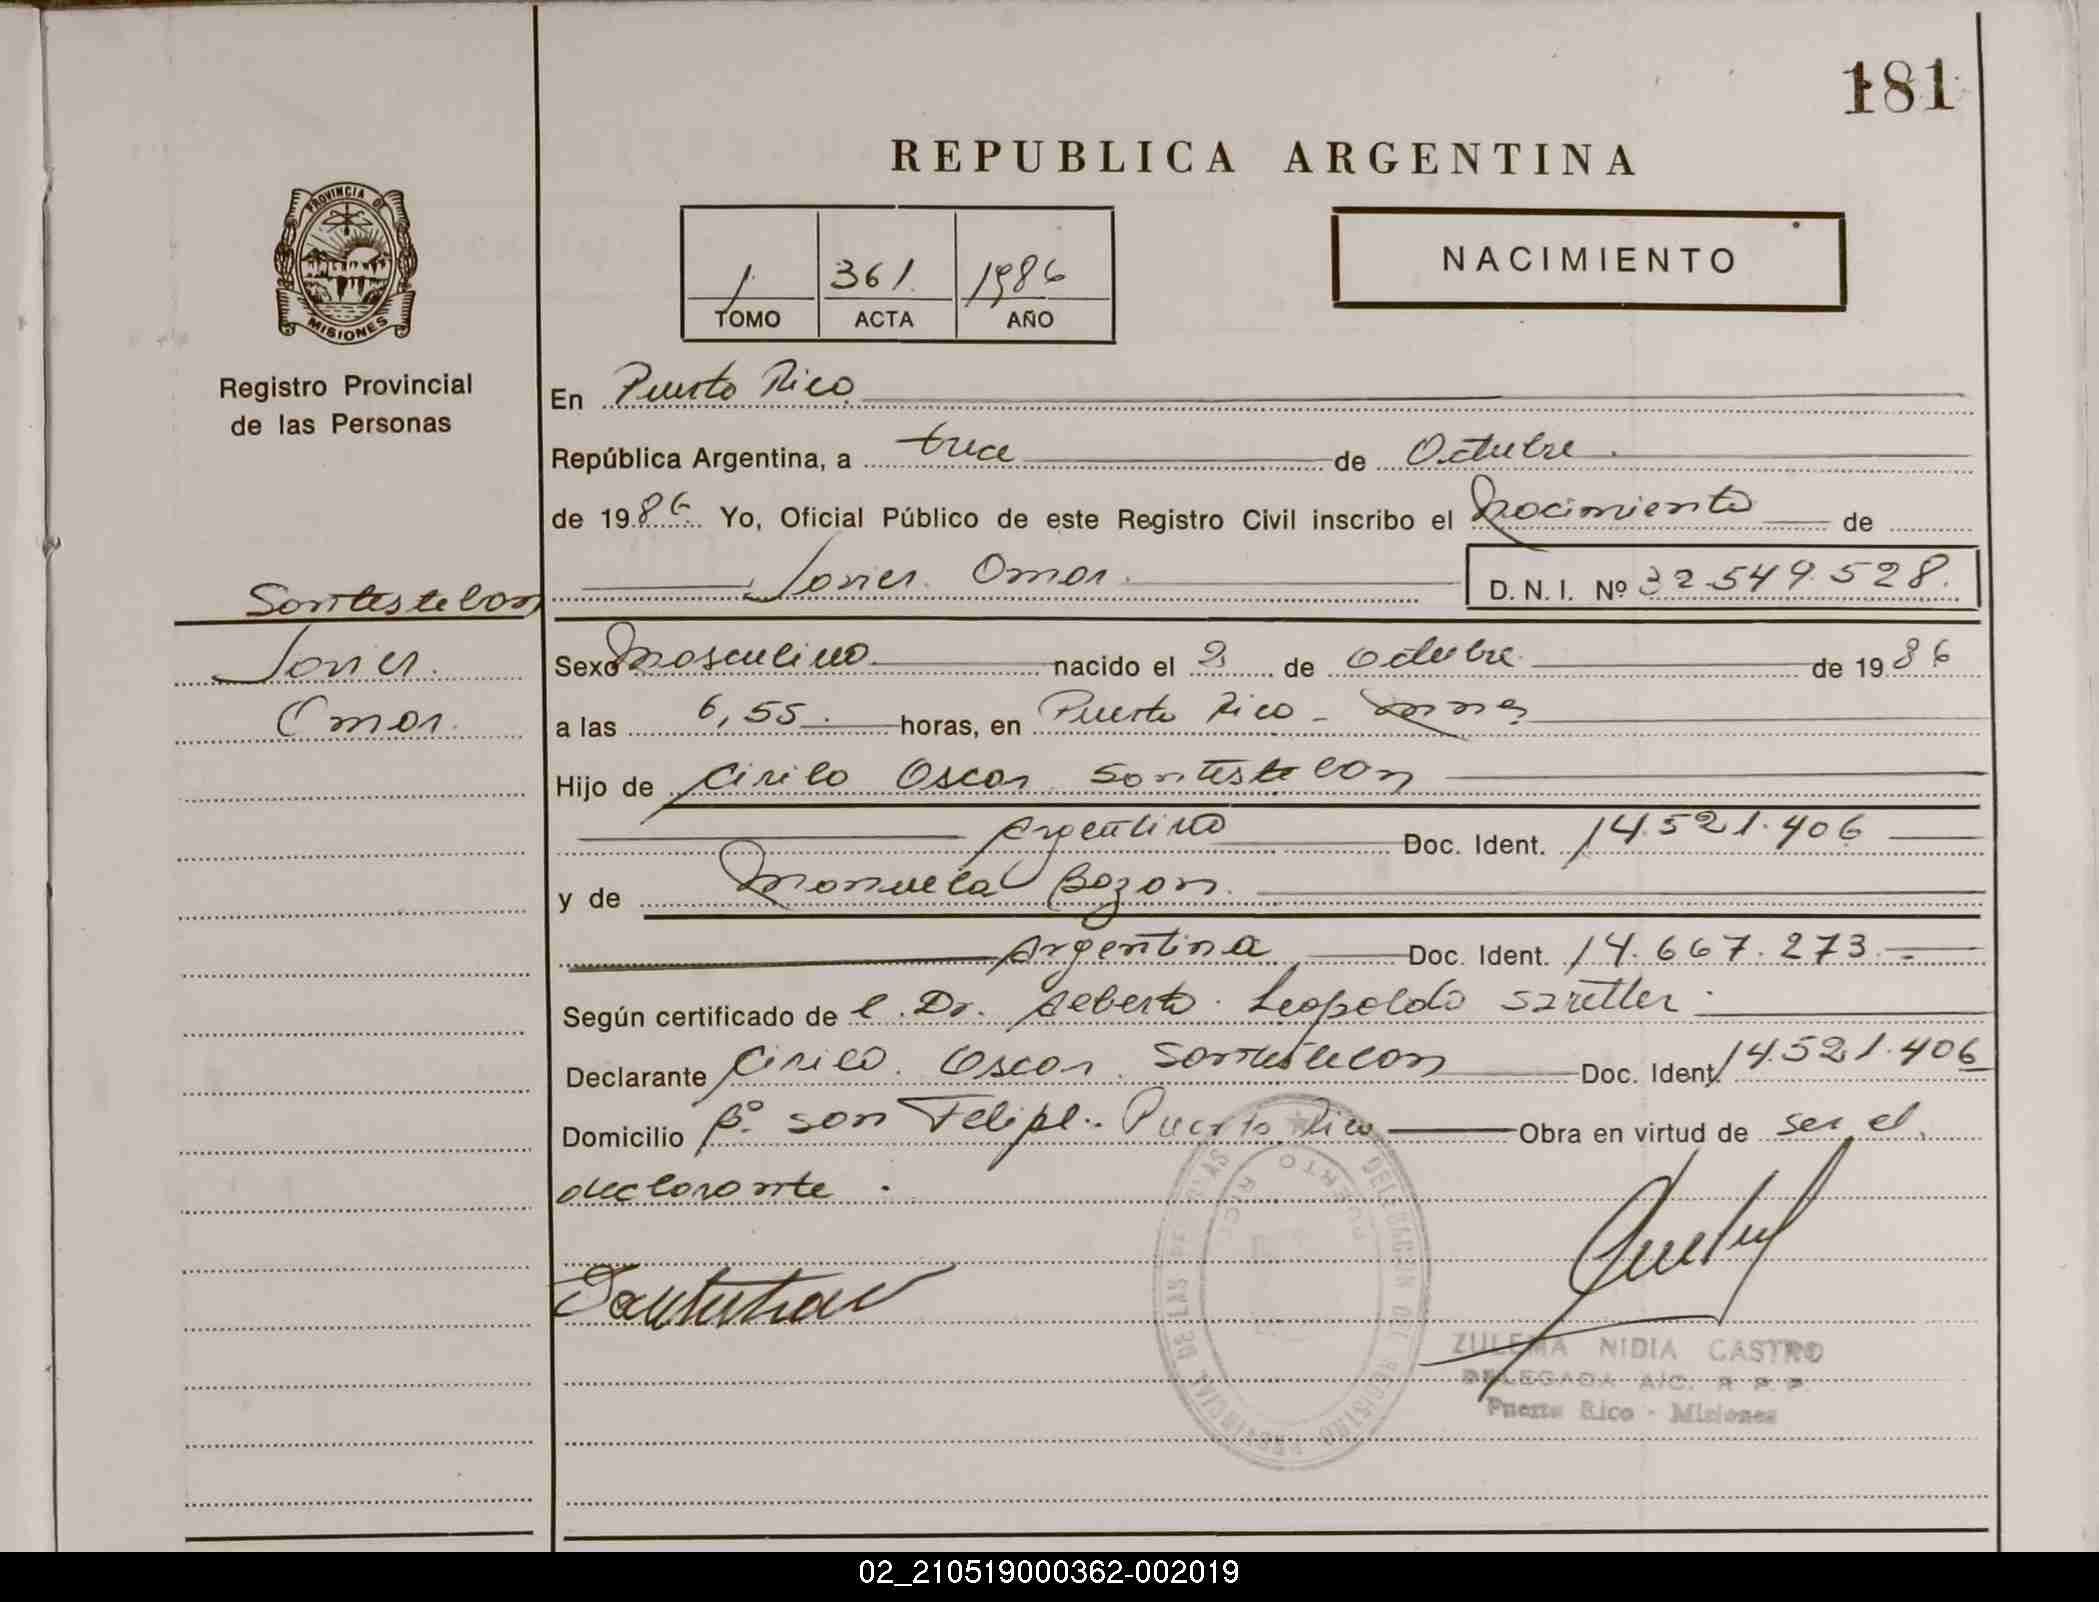 181
REPUBLICA ARGENTINA
PROVINCIA D
MISIONES
1 361 1986
TOMO ACTA AÑO
NACIMIENTO
Registro Provincial
de las Personas
En Puerto Rico
República Argentina, a trece de Octubre
de 1986 Yo, Oficial Público de este Registro Civil inscribo el Nacimiento de
Javier Omar. D. N. I. Nº 32.549.528.
Santesteban
Javier
Omar.
Sexo Masculino nacido el 2 de octubre de 1986
a las 6,55. horas, en Puerto Rico - Mnes
Hijo de Cirilo Oscar Santesteban
Argentino Doc. Ident. 14.521.406
y de Manuela Bozan.
Argentina Doc. Ident. 14.667.273
Según certificado de el Dr. Alberto Leopoldo
Declarante Cirilo Oscar Santesteban Doc. Ident. 14.521.406
Domicilio Bº San Felipe.. Puerto Rico Obra en virtud de ser el
declarante.
DELEGACION DEL REGISTRO PROVINCIAL DE LAS
PUERTO RICO
ZULEMA NIDIA CASTRO
DELEGADA A/C. R P. P.
Puerto Rico - Misiones
02_210519000362-002019